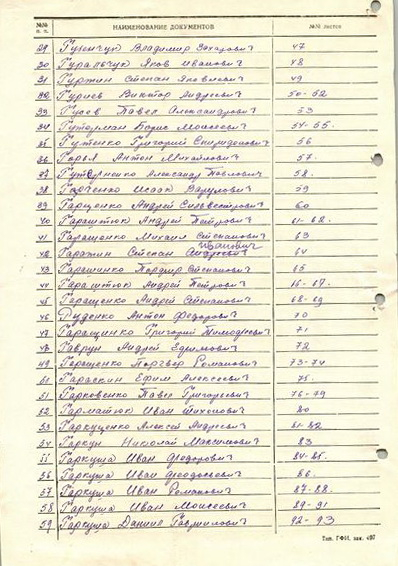 №№ п. п. НАИМЕНОВАНИЕ ДОКУМЕНТОВ №№ листов
29 Гуменчук Владимир Захарович 47
30 Гуральчук Яков Иванович 48
31 Гуржин Степан Яковлевич 49
32 Гуриев Виктор Андреевич 50-52
33 Гусов Павел Александрович 53
34 Гутерман Борис Моисеевич 54-55.
35 Гутенко Григорий Спиридонович 56
36 Антон Михайлович 57.
37 Александр Павлович 58.
38 Исаак 59
39 Гаращенко Андрей Сильвестрович 60
40 Гараштюк Андрей Петрович 61-62.
41 Гаращенко Михаил Степанович 63
Иванович
42 Гаражин Степан Андреевич 64
43 Степанович 65
44 Гараштюк Андрей Петрович 16-67.
45 Гаращенко Андрей Степанович 68-69
46 Дуденко Антон Федорович 70
47 Гаращинко Григорий Тимофеевич 71
48 Гаврун Андрей Ефимович 72
49 Романович 73-74
51 Гараскин Ефим Алексеевич 75.
51 Гарковенко Павел Григорьевич 76-79
52 Гарматюк Иван Тихонович 80
53 Алексей Андреевич 81-82
54 Гаркун Николай Максимович 83
55 Гаркуша Иван Федорович 84-85.
56 Гаркуша Иван Феодосьевич 86.
57 Гаркуша Иван Романович 87-88.
58 Гаркуша Иван Моисеевич 89-91
59 Гаркуша Даниил Гавриилович 92-93
Тип. ГФИ, зак. 497